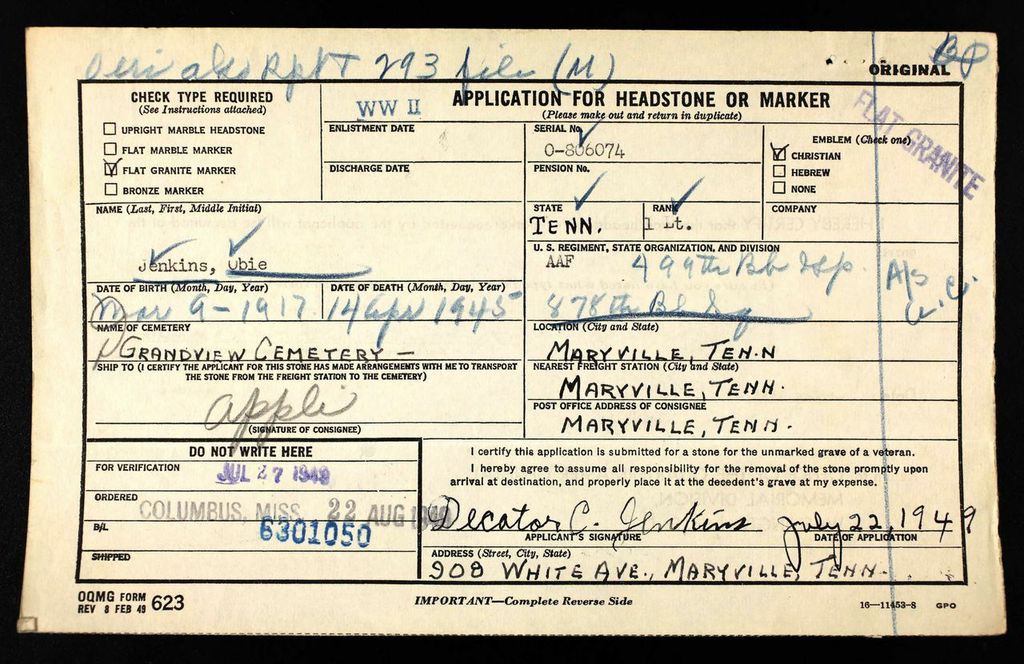 293 file (M)
BP
ORIGINAL
CHECK TYPE REQUIRED
(See Instructions attached)
UPRIGHT MARBLE HEADSTONE
FLAT MARBLE MARKER
FLAT GRANITE MARKER
BRONZE MARKER
WW II
APPLICATION FOR HEADSTONE OR MARKER
(Please make out and return in duplicate)
FLAT GRANITE
ENLISTMENT DATE
DISCHARGE DATE
SERIAL No.
O-806074
PENSION No.
EMBLEM (Check one)
CHRISTIAN
HEBREW
NONE
NAME (Last, First, Middle Initial)
Jenkins, Obie
STATE
TENN.
RANK
1 Lt.
COMPANY
U. S. REGIMENT, STATE ORGANIZATION, AND DIVISION
AAF 499th Bb Gp.
878th Bb Sq
A/S
DATE OF BIRTH (Month, Day, Year)
Mar 9-1917
DATE OF DEATH (Month, Day, Year)
14 Apr 1945
NAME OF CEMETERY
GRANDVIEW CEMETERY-
LOCATION (City and State)
MARYVILLE, TENN
SHIP TO (I CERTIFY THE APPLICANT FOR THIS STONE HAS MADE ARRANGEMENTS WITH ME TO TRANSPORT
THE STONE FROM THE FREIGHT STATION TO THE CEMETERY)
Appli
(SIGNATURE OF CONSIGNEE)
NEAREST FREIGHT STATION (City and State)
MARYVILLE, TENN.
POST OFFICE ADDRESS OF CONSIGNEE
MARYVILLE, TENN.
DO NOT WRITE HERE
FOR VERIFICATION
JUL 27 1949
ORDERED
COLUMBUS, MISS. 22 AUG
B/L
6301050
SHIPPED
I certify this application is submitted for a stone for the unmarked grave of a veteran.
I hereby agree to assume all responsibility for the removal of the stone promptly upon
arrival at destination, and properly place it at the decedent's grave at my expense.
Decator C. Jenkins July 22, 1949
APPLICANT'S SIGNATURE
DATE OF APPLICATION
ADDRESS (Street, City, State)
908 WHITE AVE., MARYVILLE, TENN.
OQMG FORM
REV 8 FEB 49 623
IMPORTANT—Complete Reverse Side
16—11453-8 GPO